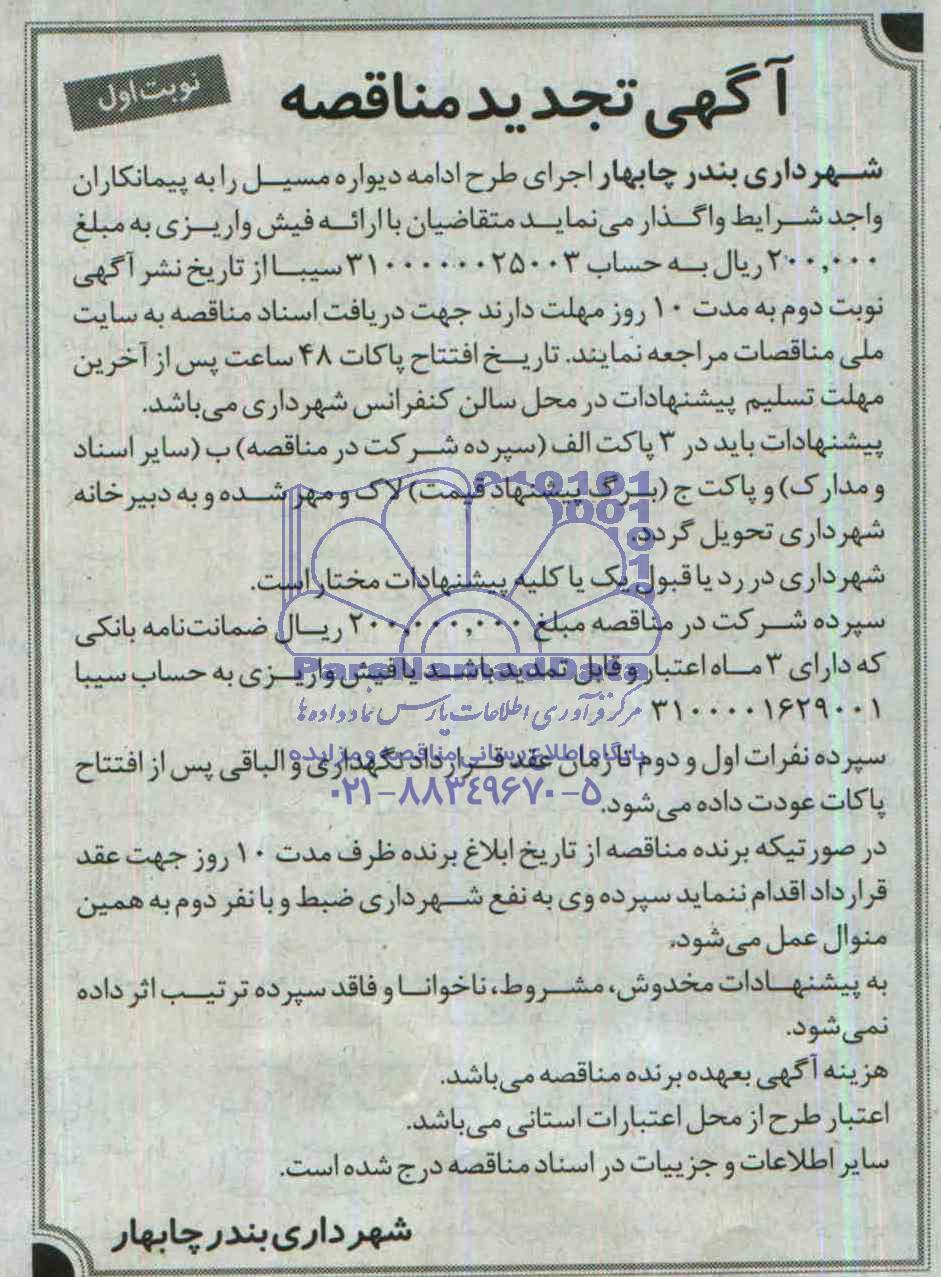 آگهی تجدید مناقصه
نوبت اول
شهرداری بندر چابهار اجرای طرح ادامه دیواره مسیل را به پیمانکاران
واجد شرایط واگذار می‌نماید متقاضیان با ارائه فیش واریزی به مبلغ
۲۰۰,۰۰۰ ریال به حساب ۳۱۰۰۰۰۰۰۲۵۰۰۳ سیبا از تاریخ نشر آگهی
نوبت دوم به مدت ۱۰ روز مهلت دارند جهت دریافت اسناد مناقصه به سایت
ملی مناقصات مراجعه نمایند. تاریخ افتتاح پاکات ۴۸ ساعت پس از آخرین
مهلت تسلیم پیشنهادات در محل سالن کنفرانس شهرداری می‌باشد.
پیشنهادات باید در ۳ پاکت الف (سپرده شرکت در مناقصه) ب (سایر اسناد
و مدارک) و پاکت ج (برگ پیشنهاد قیمت) لاک و مهر شده و به دبیرخانه
شهرداری تحویل گردد.
شهرداری در رد یا قبول یک یا کلیه پیشنهادات مختار است.
سپرده شرکت در مناقصه مبلغ ۲۰۰,۰۰۰,۰۰۰ ریال ضمانت‌نامه بانکی
که دارای ۳ ماه اعتبار و قابل تمدید باشد یا فیش واریزی به حساب سیبا
۳۱۰۰۰۰۱۶۲۹۰۰۱
سپرده نفرات اول و دوم تا زمان عقد قرارداد نگهداری و الباقی پس از افتتاح
پاکات عودت داده می‌شود.
در صورتیکه برنده مناقصه از تاریخ ابلاغ برنده ظرف مدت ۱۰ روز جهت عقد
قرارداد اقدام ننماید سپرده وی به نفع شهرداری ضبط و با نفر دوم به همین
منوال عمل می‌شود.
به پیشنهادات مخدوش، مشروط، ناخوانا و فاقد سپرده ترتیب اثر داده
نمی‌شود.
هزینه آگهی بعهده برنده مناقصه می‌باشد.
اعتبار طرح از محل اعتبارات استانی می‌باشد.
سایر اطلاعات و جزییات در اسناد مناقصه درج شده است.
شهرداری بندر چابهار
ParsNamadData
مرکز فرآوری اطلاعات پارس نماد داده ها
پایگاه اطلاع رسانی مناقصه و مزایده
۰۲۱-۸۸۳۴۹۶۷۰-۵